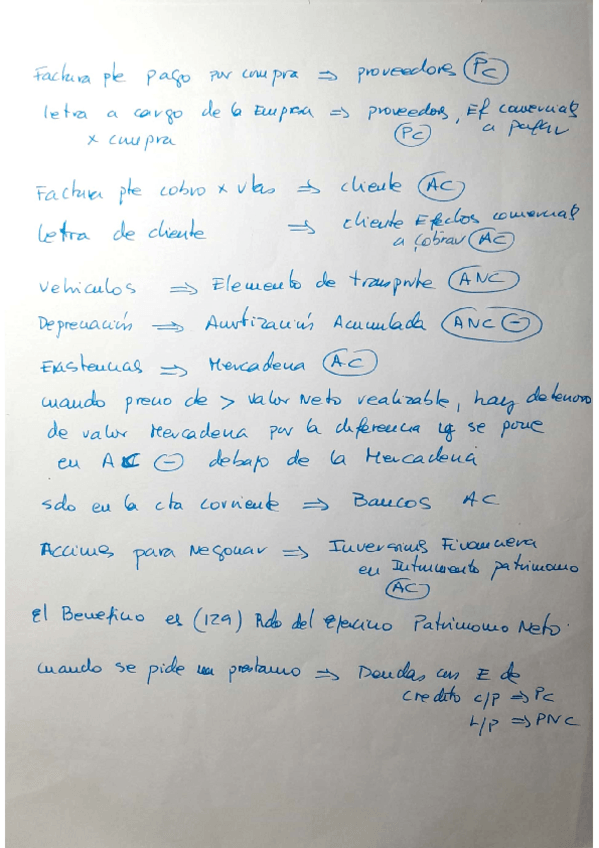 Factura pte pago por compra ⇒ proveedores (PC)
letra a cargo de la Empresa ⇒ proveedores, Ef comerciales
x compra (PC) a pagar
Factura pte cobro x vtas ⇒ cliente (AC)
letra de cliente ⇒ cliente Efectos comerciales
a cobrar (AC)
Vehiculos ⇒ Elemento de transporte (ANC)
Depreciación ⇒ Amortización Acumulada (ANC ⊖)
Existencias ⇒ Mercaderia (AC)
cuando precio de > valor Neto realizable, hay deterioro
de valor Mercaderia por la diferencia y se pone
en AC ⊖ debajo de la Mercaderia
sdo en la cta corriente ⇒ Bancos AC
Acciones para Negociar ⇒ Inversiones Financiera
en Instrumento patrimonio
(AC)
El Beneficio es (129) Rdo del Ejercicio Patrimonio Neto.
cuando se pide un prestamo ⇒ Deudas con E de
credito c/p ⇒ PC
L/p ⇒ PNC